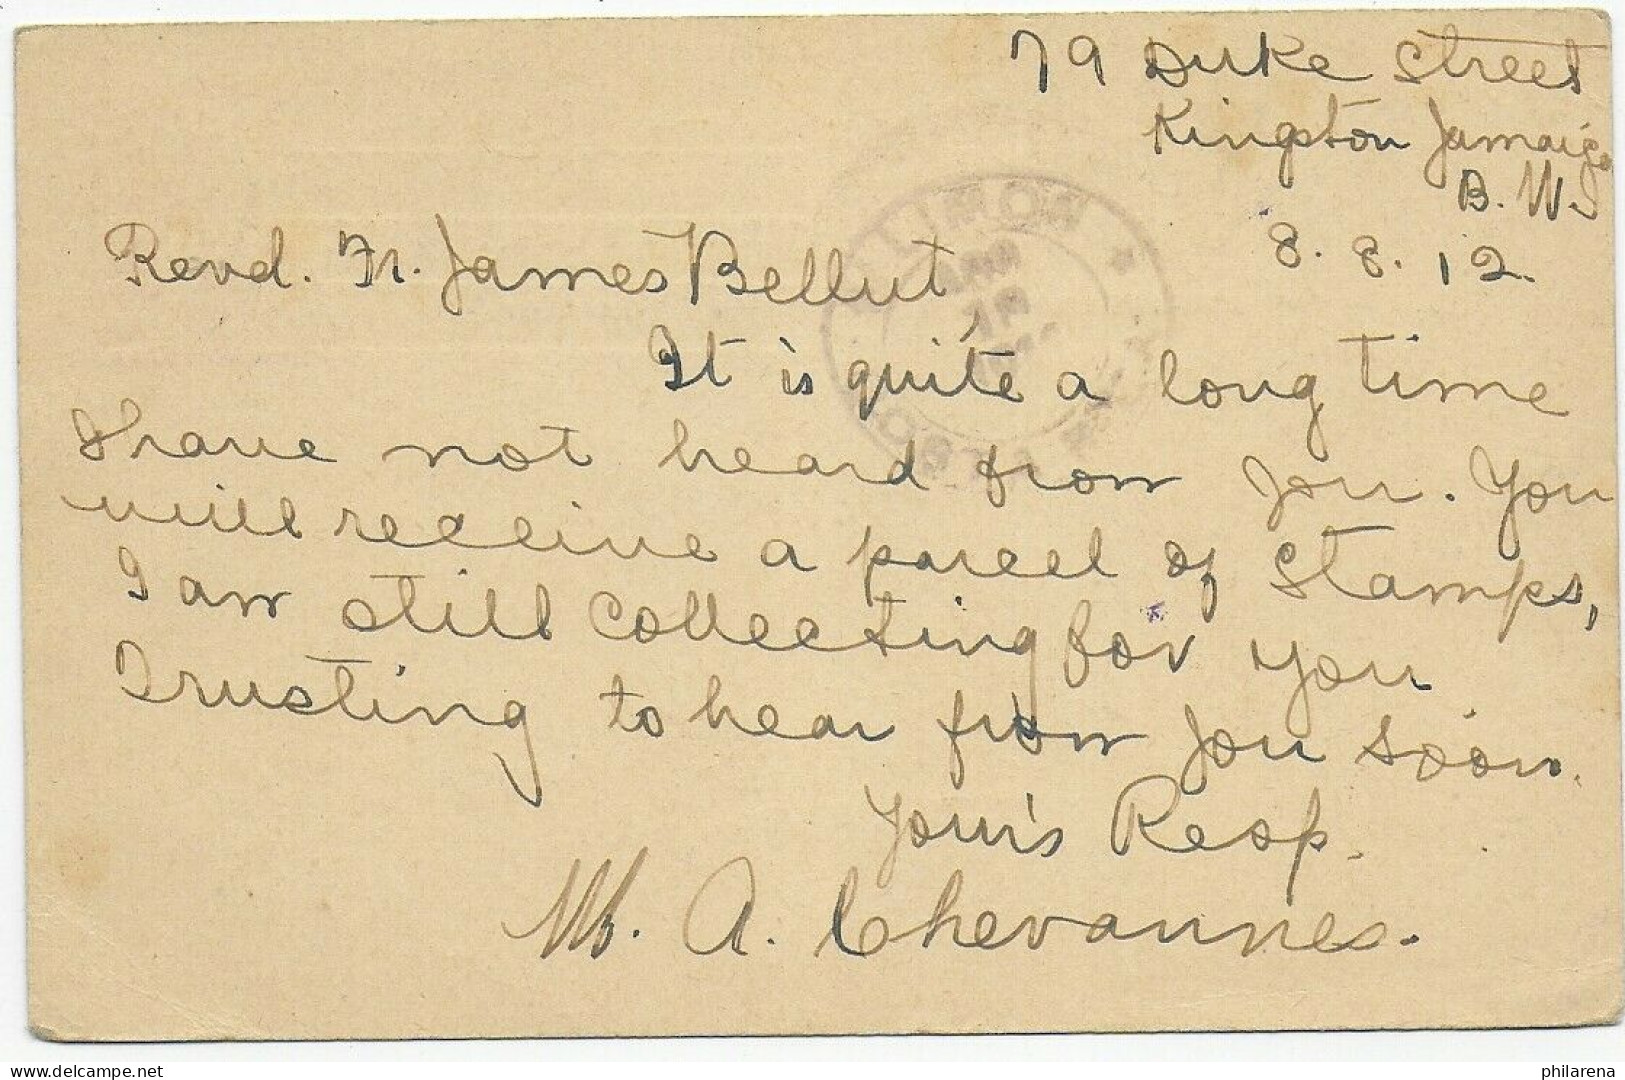 79 Duke Street
Kingston Jamaica
B. W.
8. 8. 12.
Revd. Fr. James Bellut
It is quite a long time
I have not heard from you. You
will receive a parcel of Stamps,
I am still collecting for you
Trusting to hear from you soon.
Your's Resp.
M. A. Chevannes.
LIMON
delcampe.net
philarena